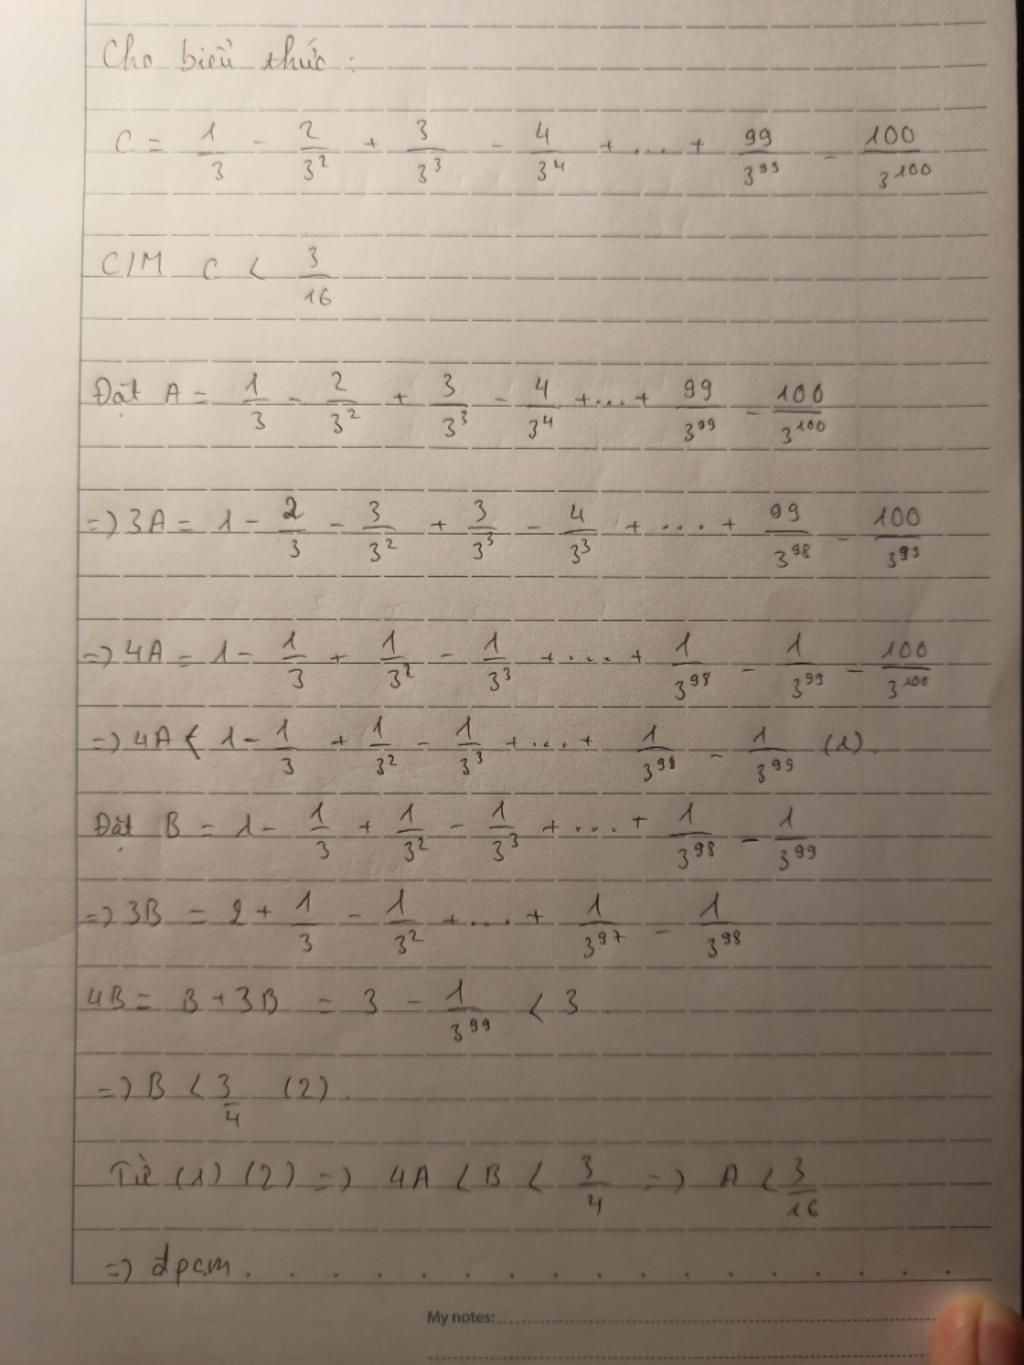 Cho biểu thức :
C = 1/3 - 2/3² + 3/3³ - 4/3⁴ + ... + 99/3⁹⁹ - 100/3¹⁰⁰
C/M C < 3/16
Đặt A = 1/3 - 2/3² + 3/3³ - 4/3⁴ + ... + 99/3⁹⁹ - 100/3¹⁰⁰
=> 3A = 1 - 2/3 - 3/3² + 3/3³ - 4/3³ + .... + 99/3⁹⁸ - 100/3⁹⁹
=> 4A = 1 - 1/3 + 1/3² - 1/3³ + .... + 1/3⁹⁸ - 1/3⁹⁹ - 100/3¹⁰⁰
=> 4A < 1 - 1/3 + 1/3² - 1/3³ + ... + 1/3⁹⁸ - 1/3⁹⁹ (1).
Đặt B = 1 - 1/3 + 1/3² - 1/3³ + .... + 1/3⁹⁸ - 1/3⁹⁹
=> 3B = 2 + 1/3 - 1/3² + .... + 1/3⁹⁷ - 1/3⁹⁸
4B = B + 3B = 3 - 1/3⁹⁹ < 3.
=> B < 3/4 (2).
Từ (1) (2) => 4A < B < 3/4 => A < 3/16
=> đpcm.
My notes: